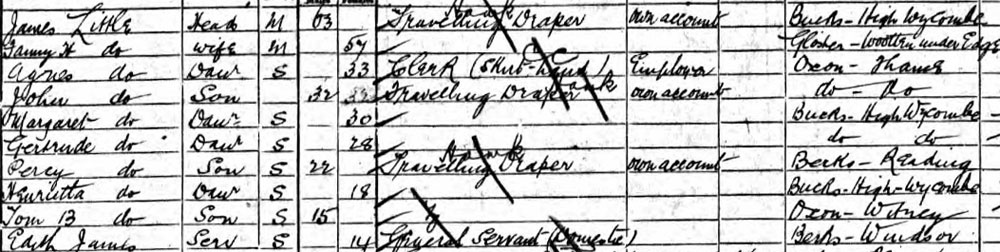 James Little Head M 63 Travelling Draper own account Bucks - High Wycombe
Fanny H do Wife M 57 Gloster - Wootten under Edge
Agnes do Daur S 33 Clerk (Short-hand) Employer Oxon - Thame
John do Son S 32 Travelling Draper own account do - do
Margaret do Daur S 30 Bucks - High Wycombe
Gertrude do Daur S 28 do do
Percy do Son S 22 Travelling Draper own account Berks - Reading
Henrietta do Daur S 18 Bucks - High Wycombe
Tom B do Son S 15 Oxon - Witney
Edith James Serv S 14 General Servant (Domestic) Berks - Windsor